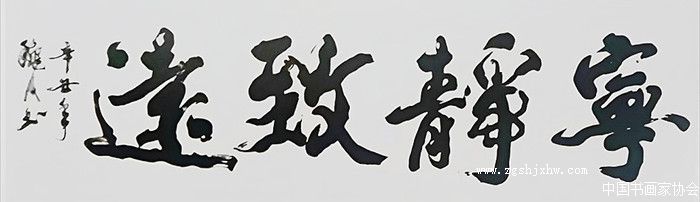 寧靜致遠
辛丑年
www.zgshjxhw.com
中国书画家协会